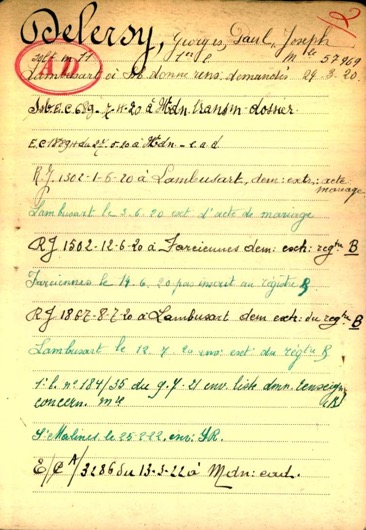 Delersy, Georges, Paul, Joseph
1er C Mle 57969
Lambusart où donne rens. demandés 29.3.20.
7-4-20 à Mdn. transm dossier.
à Mdn - c a d
R J. 1302-1-6-20 à Lambusart, dem: extr: acte
mariage
Lambusart le 3.6.20 ext d'acte de mariage
R J 1502-12-6-20 à Farciennes dem: exch: regtre B
Farciennes le 14.6.20 pas inscrit au régistre B
R J 1867-8-7-20 à Lambusart dem exch: du regtre B
Lambusart le 12.7.20 env: ext: du régtre B
n° 184/35 du 9.7.21 env. liste dmn. renseign
concern. mle
St Malines. le 25-2-22. env: SR.
E/C A/3286 du 13-3-22 à Mdn: cad.